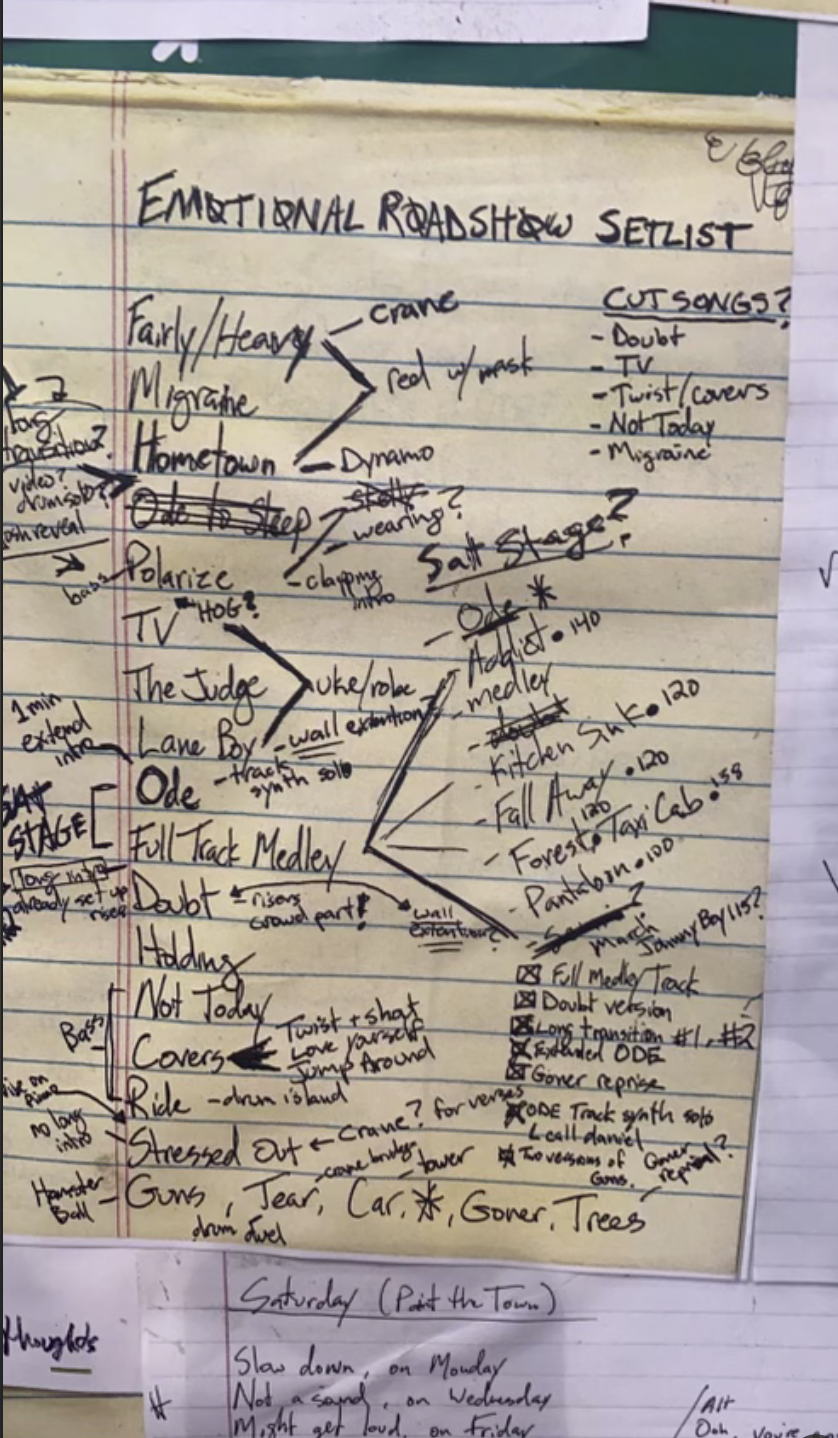 EMOTIONAL ROADSHOW SETLIST
Fairly/Heavy - crane
red w/ mask
Migraine
Hometown - Dynamo
Ode to Sleep
wearing?
Polarize - clapping intro
TV HOG?
The Judge
uke/robe
Lane Boy - wall extention
- track synth solo
Ode
Full Track Medley
Doubt - risers
crowd part!
wall extention?
Holding
Not Today
Covers
Twist + shout
Love yourself
Jump Around
Ride - drum island
Stressed Out ← Crane? for verses
Guns, Tear, Car, *, Goner, Trees
drum duel
crane bridge
tower
Goner reprisal?
CUT SONGS?
- Doubt
- TV
- Twist/covers
- Not Today
- Migraine
Salt Stage?
- Ode *
Addict • 140
- medley
- doubt
- Kitchen Sink • 120
- Fall Away • 120
- Forest • 120 Taxi Cab • 138
- Pantaloon • 100
March?
Johnny Boy 115?
Full Medley Track
Doubt version
Long transition #1, #2
Extended ODE
Goner reprise
ODE Track synth solo
L call daniel
Two versions of Guns.
long
transition?
video?
drumsolo?
reveal
bass
1 min
extend
intro
STAGE
long intro
already set up
riser
Bass
no long
intro
Hamster
Ball
thoughts
Saturday (Paint the Town)
Slow down, on Monday
Not a sound, on Wednesday
Might get loud, on Friday
/Alt
Ooh, you're